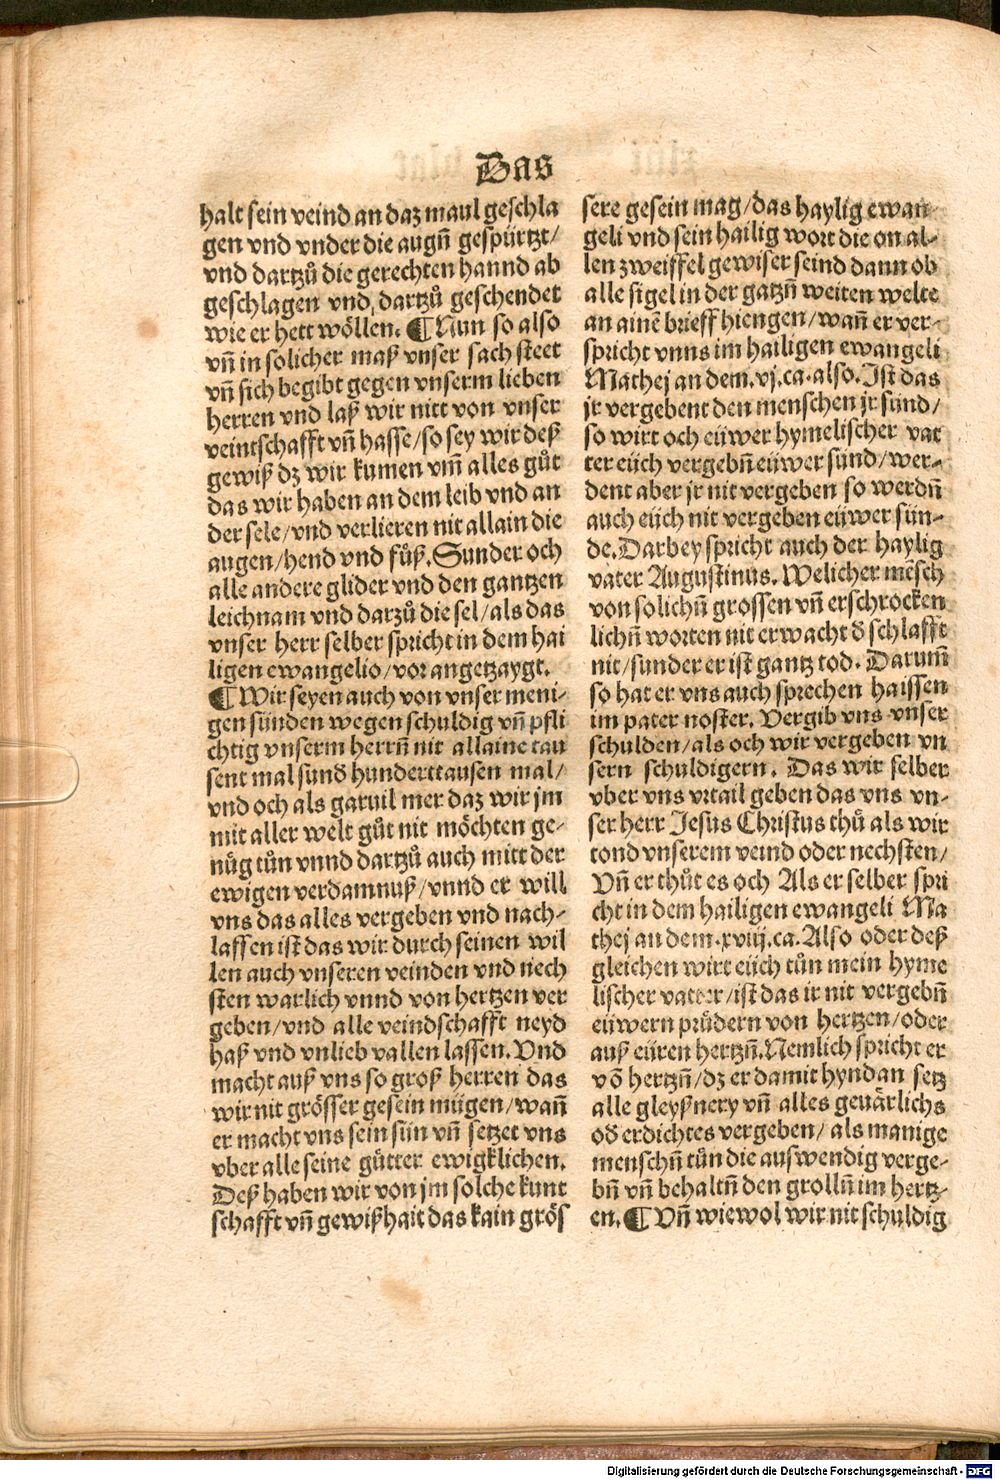 Das
halt sein veind an daz maul geschla
gen vnd vnder die augñ gespürtzt/
vnd dartzů die gerechten hannd ab
geschlagen vnd dartzů geschendet
wie er hett wöllen. ¶ Nun so also
vñ in solicher maß vnser sach steet
vñ sich begibt gegen vnserm lieben
herren vnd laß wir nitt von vnser
veintschafft vñ hasse/so sey wir deß
gewiß dz wir kumen vm̄ alles gůt
das wir haben an dem leib vnd an
der sele/vnd verlieren nit allain die
augen/hend vnd füß. Sunder och
alle andere glider vnd den gantzen
leichnam vnd darzů die sel/als das
vnser herr selber spricht in dem hai
ligen ewangelio/vor angetzaygt.
¶ Wir seyen auch von vnser meni-
gen sünden wegen schuldig vñ pfli
chtig vnserm herrñ nit allaine tau
sent mal sund hunderttausen mal/
vnd och als garuil mer daz wir jm
mit aller welt gůt nit möchten ge-
nůg tůn vnnd dartzů auch mitt der
ewigen verdamnuß/vnnd er will
vns das alles vergeben vnd nach-
lassen ist das wir durch seinen wil
len auch vnseren veinden vnd nech
sten warlich vnnd von hertzen ver
geben/vnd alle veindschafft neyd
haß vnd vnlieb vallen lassen. Vnd
macht auß vns so groß herren das
wir nit grösser gesein mügen/wañ
er macht vns sein sün vñ setzet vns
vber alle seine gütter ewigklichen.
Deß haben wir von jm solche kunt
schafft vñ gewißhait das kain grös
sere gesein mag/das haylig ewan-
geli vnd sein hailig wort die on al-
len zweiffel gewiser seind dann ob
alle sigel in der gatzñ weiten welte
an ainē brieff hiengen/wañ er ver-
spricht vnns im hailigen ewangeli
Mathej an dem.vj.ca.also. Ist das
jr vergebent den menschen jr sünd/
so wirt och eüwer hymelischer vat
ter eüch vergebñ eüwer sünd/wer-
dent aber jr nit vergeben so werdñ
auch eüch nit vergeben eüwer sün-
de. Darbey spricht auch der haylig
vater Augustinus. Welicher mēsch
von solichñ grossen vñ erschrocken
lichñ worten nit erwacht d̄ schlafft
nit/sunder er ist gantz tod. Darum̄
so hat er vns auch sprechen haissen
im pater noster. Vergib vns vnser
schulden/als och wir vergeben vn
sern schuldigern. Das wir selber
vber vns vrtail geben das vns vn-
ser herr Jesus Christus thů als wir
tond vnserem veind oder nechsten/
Vñ er thůt es och Als er selber spri
cht in dem hailigen ewangeli Ma
thej an dem.xviij.ca. Also oder deß
gleichen wirt eüch tůn mein hyme
lischer vatter/ist das ir nit vergebñ
eüwern prüdern von hertzen/oder
auß eüren hertzñ. Nemlich spricht er
vō hertzñ/dz er damit hyndan setz
alle gleyßnery vñ alles geuärlichs
od̄ erdichtes vergeben/als manige
menschñ tůn die auswendig verge-
bñ vñ behaltñ den grollñ im hertz-
en. ¶ Vñ wiewol wir nit schuldig
Digitalisierung gefördert durch die Deutsche Forschungsgemeinschaft - DFG